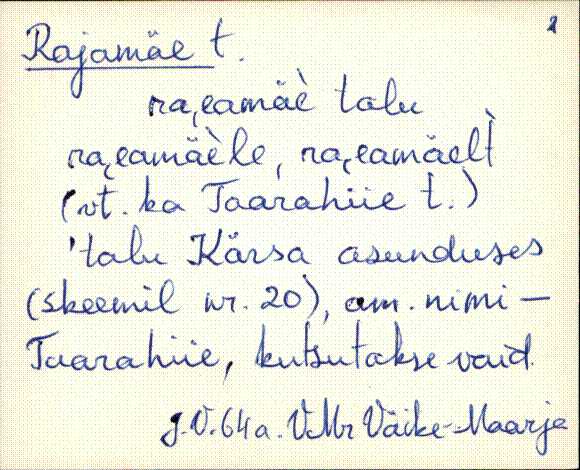 2
Rajamäe t.
ra,eamäè talu
ra,eamäèle, ra,eamäelt̀
(vt. ka Taarahiie t.)
'talu Kärsa asunduses
(skeemil nr. 20), am. nimi –
Taarahiie, kutsutakse vaid
J.V. 64a. VMr Väike-Maarja